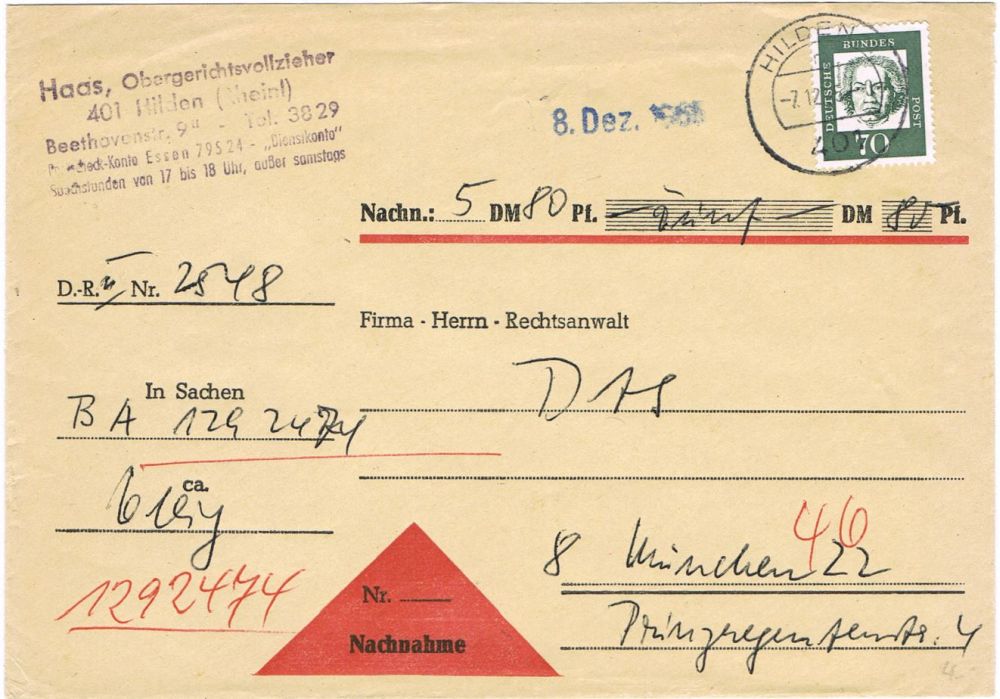 Haas, Obergerichtsvollzieher
401 Hilden (Rheinl)
Beethovenstr. 9ᵃ - Tel. 3829
Postscheck-Konto Essen 79524 - „Dienstkonto“
Sprechstunden von 17 bis 18 Uhr, außer samstags
8. Dez.
HILDEN
-7.12.
401
DEUTSCHE BUNDESPOST
70
Nachn.: 5 DM 80 Pf. — fünf — DM 80 Pf.
D.-R. II Nr. 2548
Firma - Herrn - Rechtsanwalt
DAS
In Sachen
BA 1292474
ca.
46
8 München 22
Prinzregentenstr. 4
1292474
Nr.
Nachnahme